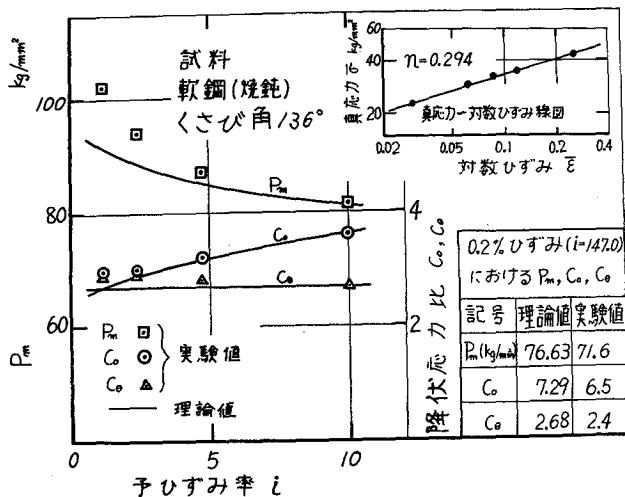 kg/mm²
100
80
60
Pm
試料
軟鋼(焼鈍)
くさび角136°
Pm
C₀
Cθ
Pm
C₀
Cθ
実験値
理論値
0
5
10
予ひずみ率 i
4
2
降伏応力比 C₀, Cθ
真応力 σ̅ kg/mm²
60
40
20
n=0.294
真応力-対数ひずみ線図
0.02
0.04
0.1
0.2
0.4
対数ひずみ ε̅
0.2%ひずみ(i=147.0)
における Pm, C₀, Cθ
記号 理論値 実験値
Pm(kg/mm²) 76.63 71.6
C₀ 7.29 6.5
Cθ 2.68 2.4